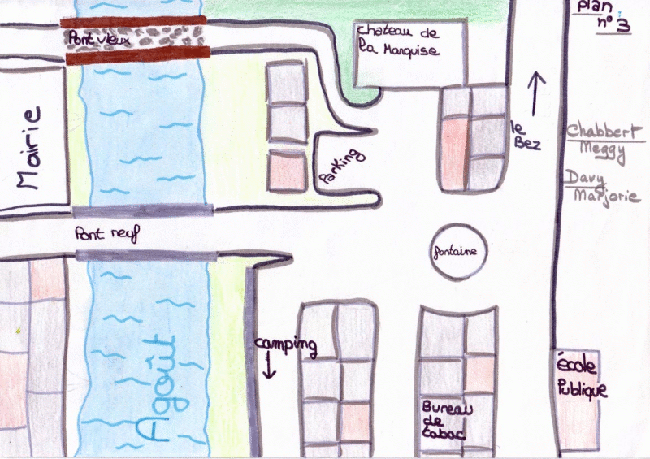 plan
n° 3
Pont vieux
chateau de
la Marquise
le
Bez
Chabbert
Meggy
Davy
Marjorie
Mairie
Parking
Pont neuf
fontaine
Agoût
camping
école
Publique
Bureau
de
tabac